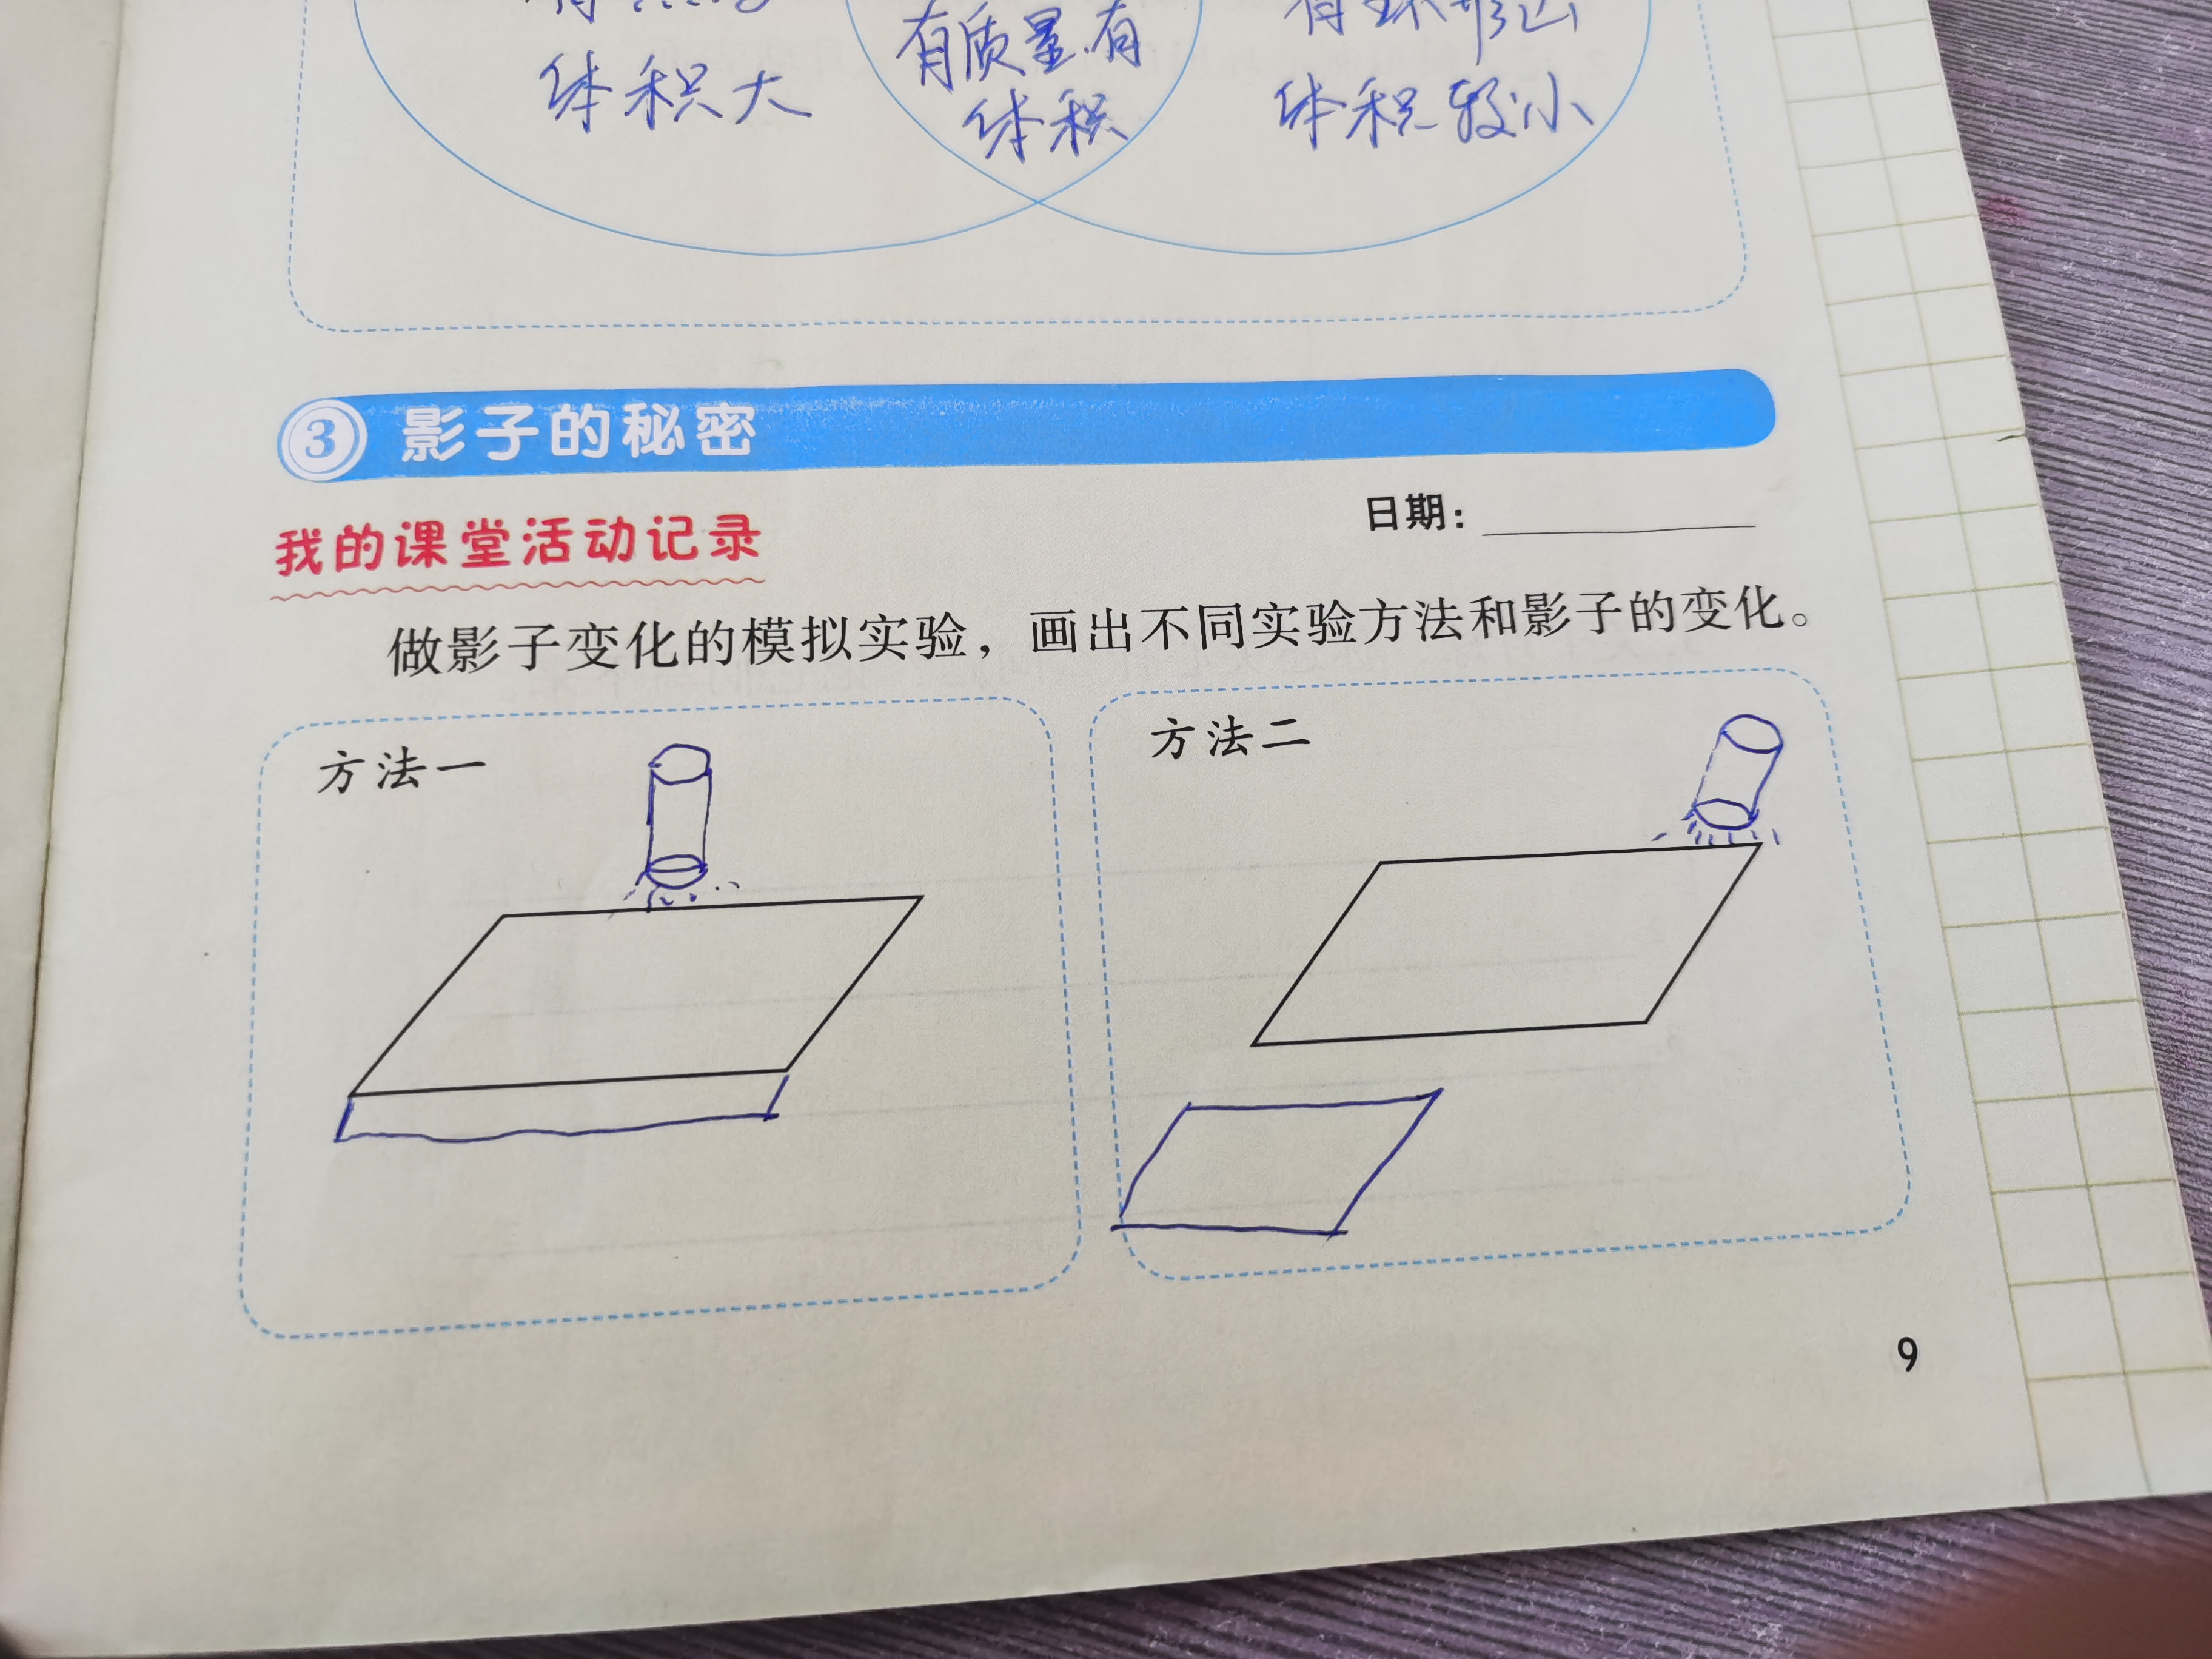 有质量.有
体积大
体积
体积较小
3 影子的秘密
我的课堂活动记录
日期：
做影子变化的模拟实验，画出不同实验方法和影子的变化。
方法一
方法二
9